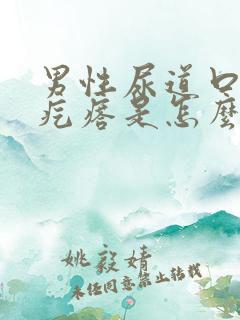 男性尿道口
疙瘩是怎麼
姚毅婧
未经同意禁止转载